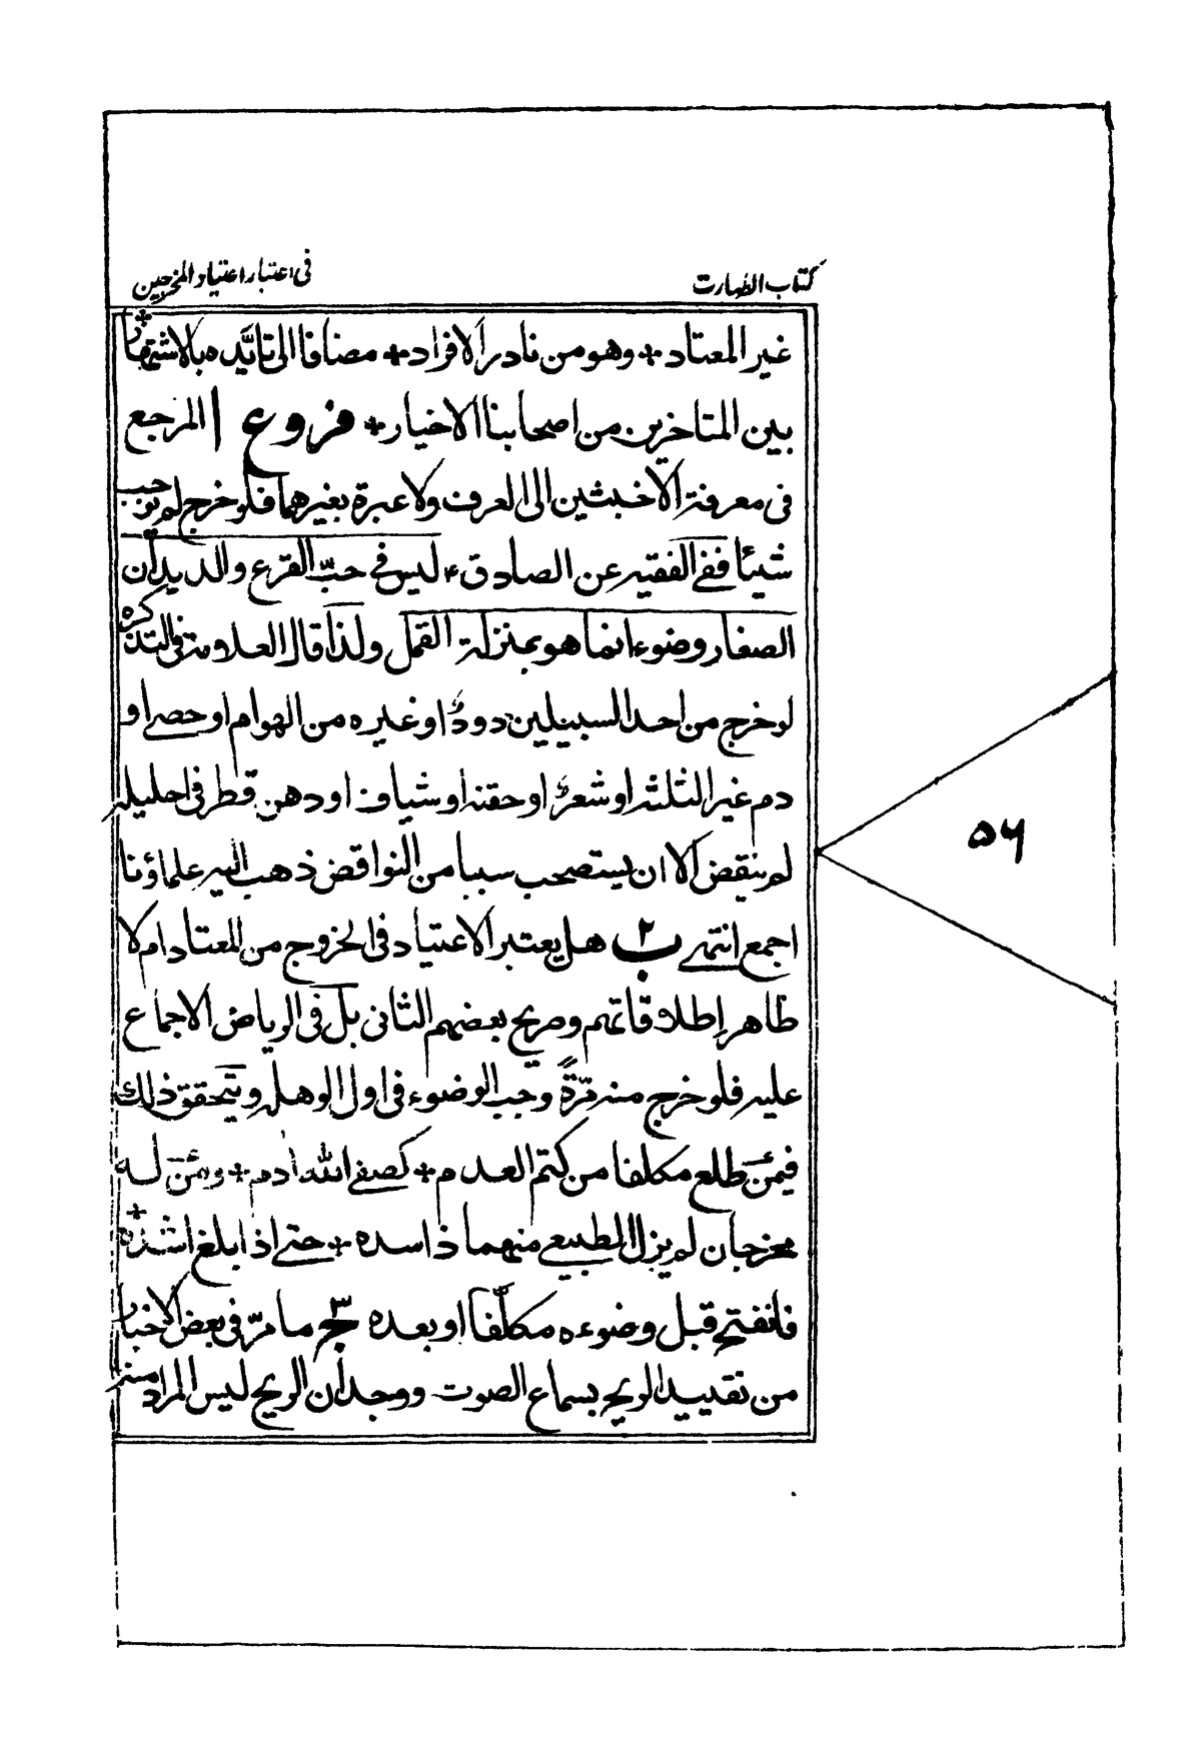 كتاب الطهارت
فى اعتبار اعتياد المخرجين
غير المعتاد + وهو من نادر الافراد + مضافا الى تايّده بالاشتهار +
بين المتاخرين من اصحابنا الاخيار + فروع ا المرجع
فى معرفة الاخبثين الى العرف ولا عبرة بغيرهما فلو خرج لم يوجب
شيئا ففى الفقيه عن الصادق ع ليس فى حبّ القرع والديدان
الصغار وضوء انما هو بمنزلة القمل ولذا قال العلامة فى التذكره
لو خرج من احد السبيلين دودٌ او غيره من الهوام او حصى او
دم غير الثلثة او شعرٌ او حقنة او شياف او دهن قطر فى احليله
لم ينقض الا ان يستصحب سببا من النواقض ذهب اليه علماؤنا
اجمع انتهى ب ٢ هل يعتبر الاعتياد فى الخروج من المعتاد ام لا
ظاهر اطلاقاتهم وصريح بعضهم الثانى بل فى الرياض الاجماع
عليه فلو خرج منه مرّةً وجب الوضوء فى اول الوهلة ويتحقق ذلك
فيمن طلع مكلفا من كتم العدم + كصفى الله ادم + ومن له
مخرجان لم يزل الطبيعى منهما ذا سده + حتى اذا بلغ اشدّه +
فانفتح قبل وضوءه مكلّفا او بعده ج ٣ ما مرّ فى بعض الاخبار
من تقييد الريح بسماع الصوت ووجدان الريح ليس المراد منه
٥٦